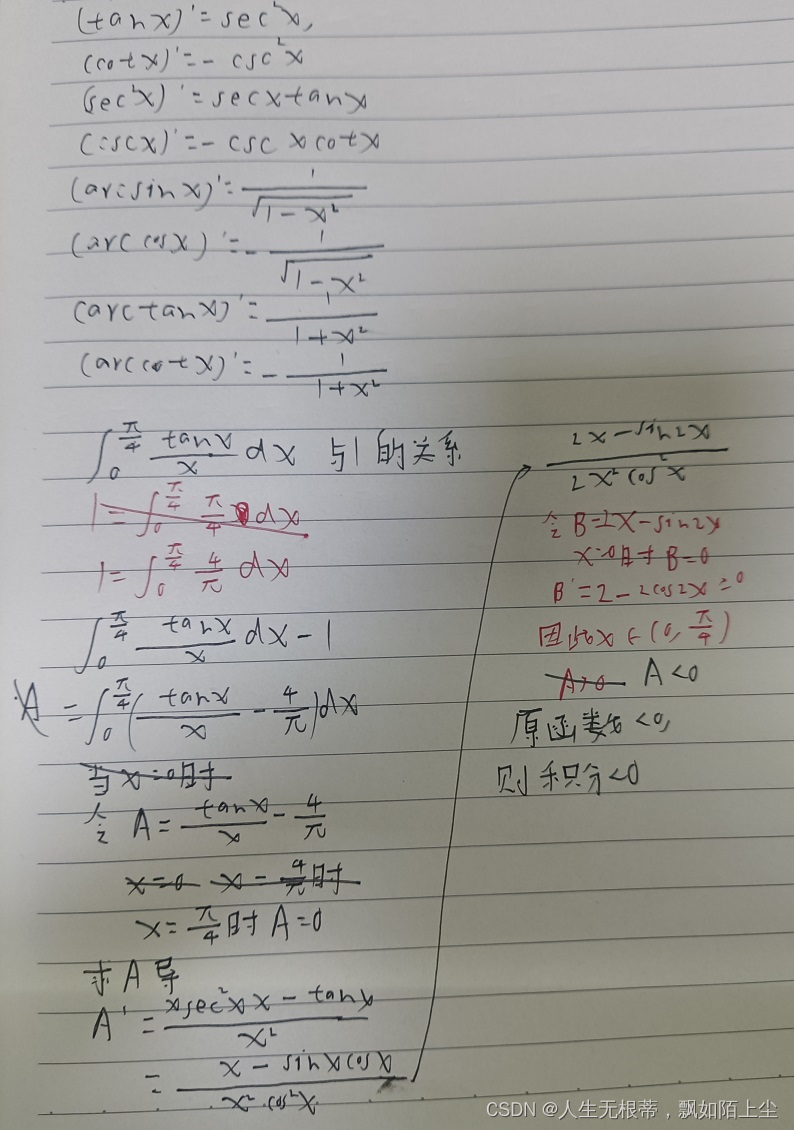 (tanx)'=sec²x,
(cotx)'=-csc²x
(sec²x)'=secxtanx
(cscx)'=-cscxcotx
(arcsinx)'=1/√(1-x²)
(arccosx)'=-1/√(1-x²)
(arctanx)'=1/(1+x²)
(arccotx)'=-1/(1+x²)
∫₀^(π/4) tanx/x dx 与1的关系
1=∫₀^(π/4) π/4 dx
1=∫₀^(π/4) 4/π dx
∫₀^(π/4) tanx/x dx-1
A=∫₀^(π/4)(tanx/x-4/π)dx
当x=0时
令A=tanx/x-4/π
x=0 x=4/π时
x=π/4时A=0
求A导
A'=(xsec²xx-tanx)/x²
=(x-sinxcosx)/(x²cos²x)
(2x-sin2x)/(2x²cos²x)
令B=2x-sin2x
x=0时B=0
B'=2-2cos2x=0
因此x∈(0,π/4)
A>0 A<0
原函数<0,
则积分<0
CSDN @人生无根蒂，飘如陌上尘